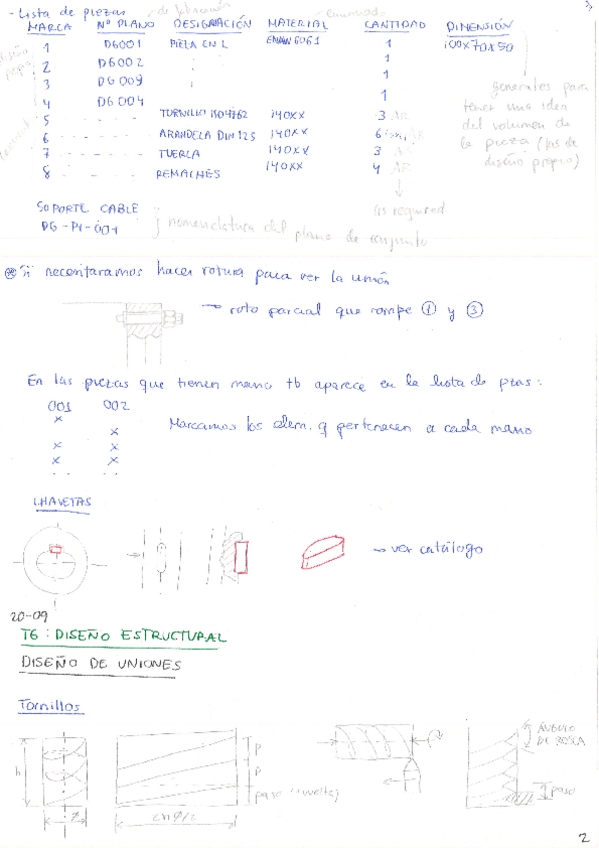 - Lista de piezas de fabricación enumerado
MARCA Nº PLANO DESIGNACIÓN MATERIAL CANTIDAD DIMENSIÓN
1 DG001 PIEZA EN L ENAW 6061 1 100x70x50
2 DG002 " 1
3 DG009 " 1
4 DG004 1
5 - - - - TORNILLO ISO4762 140xx 3 AR
6 - - - - ARANDELA DIN 125 140xx 6 AR
7 - - - - TUERCA 140xx 3 AR
8 - - - - REMACHES 140xx 4 AR
generales para
tener una idea
del volumen de
la pieza (las de
diseño propio)
as required
SOPORTE CABLE
DG-P1-001
nomenclatura del plano de conjunto
⊛ Si necesitaramos hacer rotura para ver la unión
→ roto parcial que rompe ① y ③
En las piezas que tienen mano tb aparece en la lista de pzas:
001 002
x
x Marcamos los elem. q pertenecen a cada mano
x x
x x
.. ..
CHAVETAS
→ ver catálogo
20-09
T6: DISEÑO ESTRUCTURAL
DISEÑO DE UNIONES
Tornillos
h
P
P
paso (1 vuelta)
ÁNGULO
DE ROSCA
paso
2